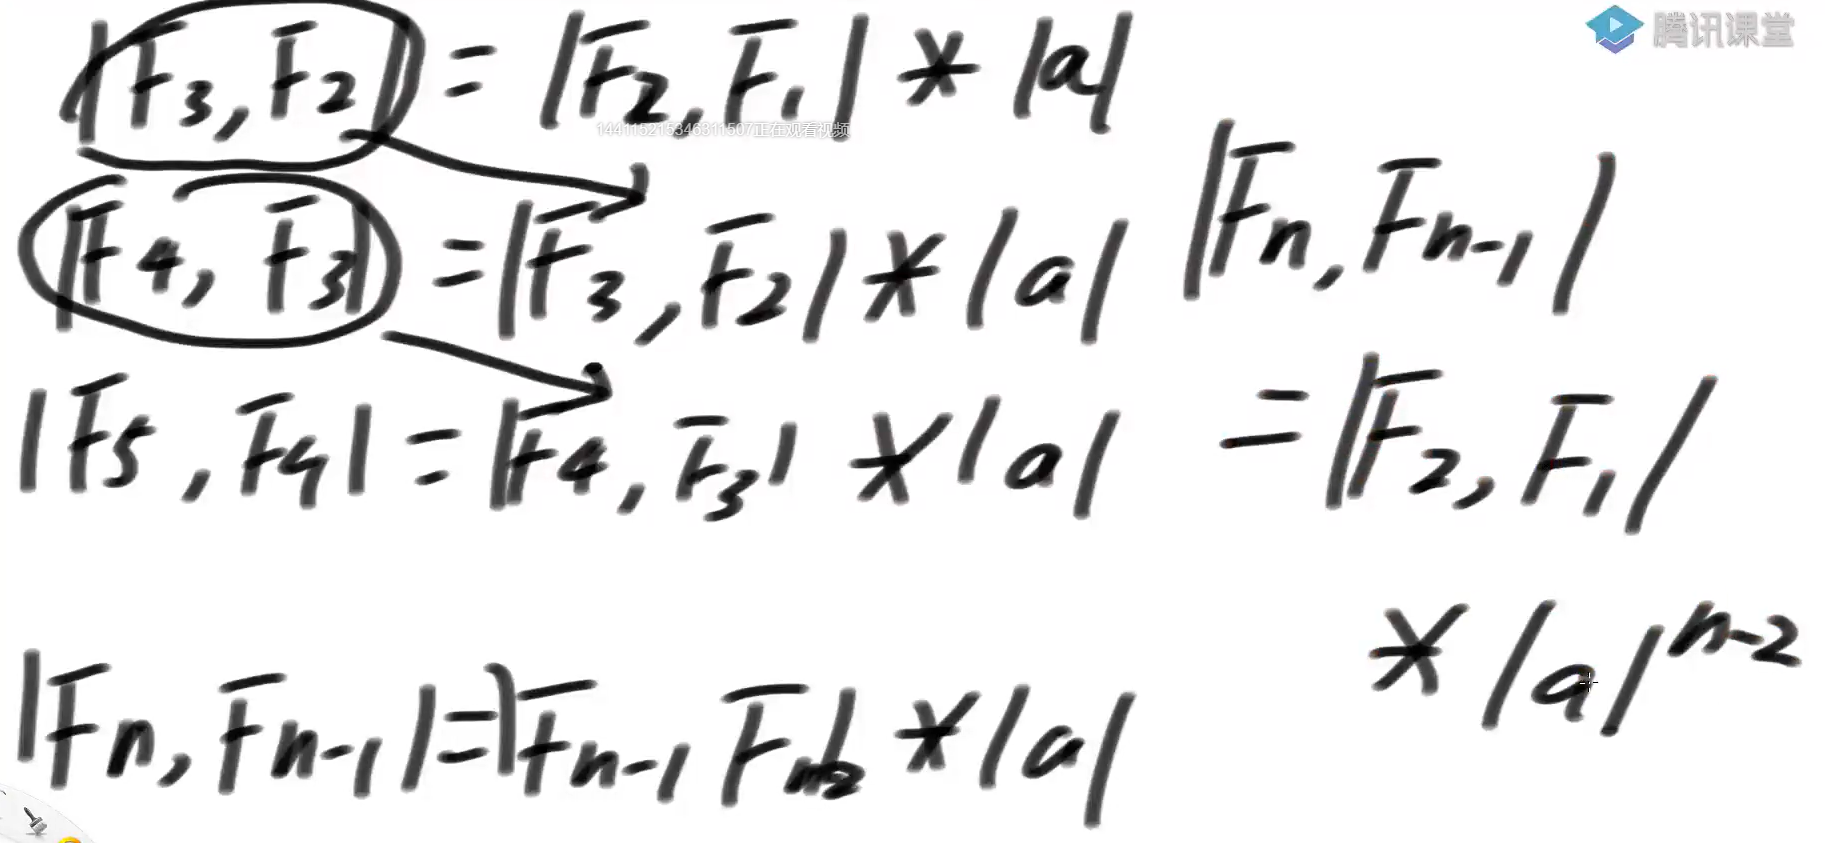 腾讯课堂
|F3, F2| = |F2, F1| * |a|
144115215346311507正在观看视频
|F4, F3| = |F3, F2| * |a|
|F5, F4| = |F4, F3| * |a|
|Fn, Fn-1| = |Fn-1 Fn-2| * |a|
|Fn, Fn-1|
= |F2, F1|
* |a|^n-2